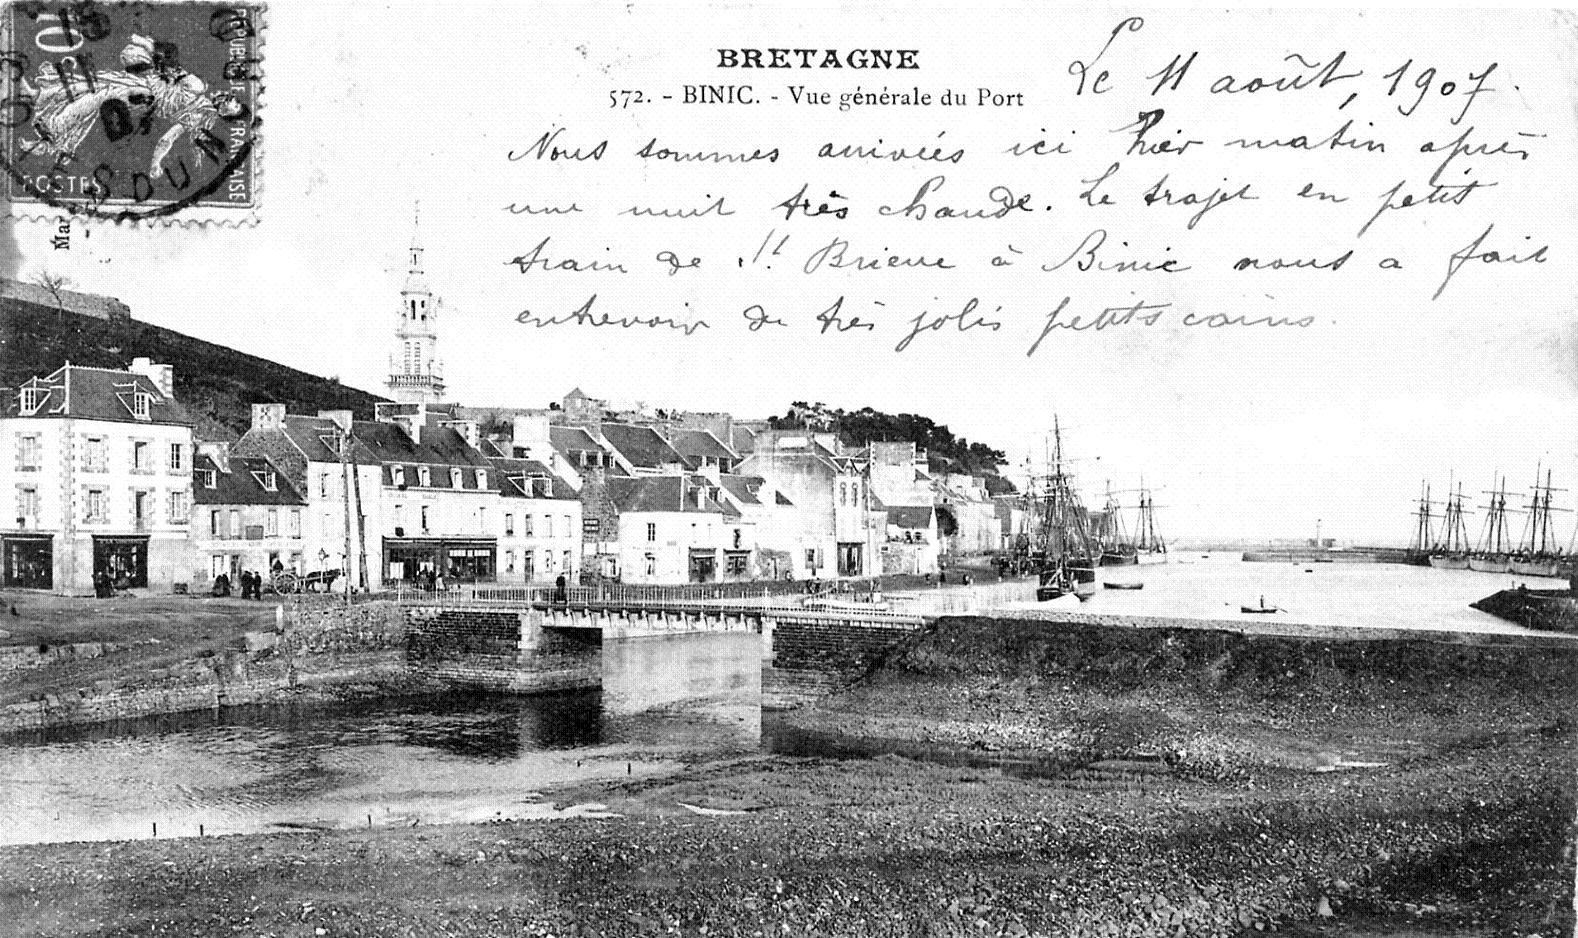 BRETAGNE
572. - BINIC. - Vue générale du Port
Le 11 août, 1907.
Nous sommes arrivées ici hier matin après
une nuit très chaude. Le trajet en petit
train de St. Brieuc à Binic nous a fait
entrevoir de très jolis petits coins.
10
REPUBLIQUE FRANCAISE
POSTES
11
07